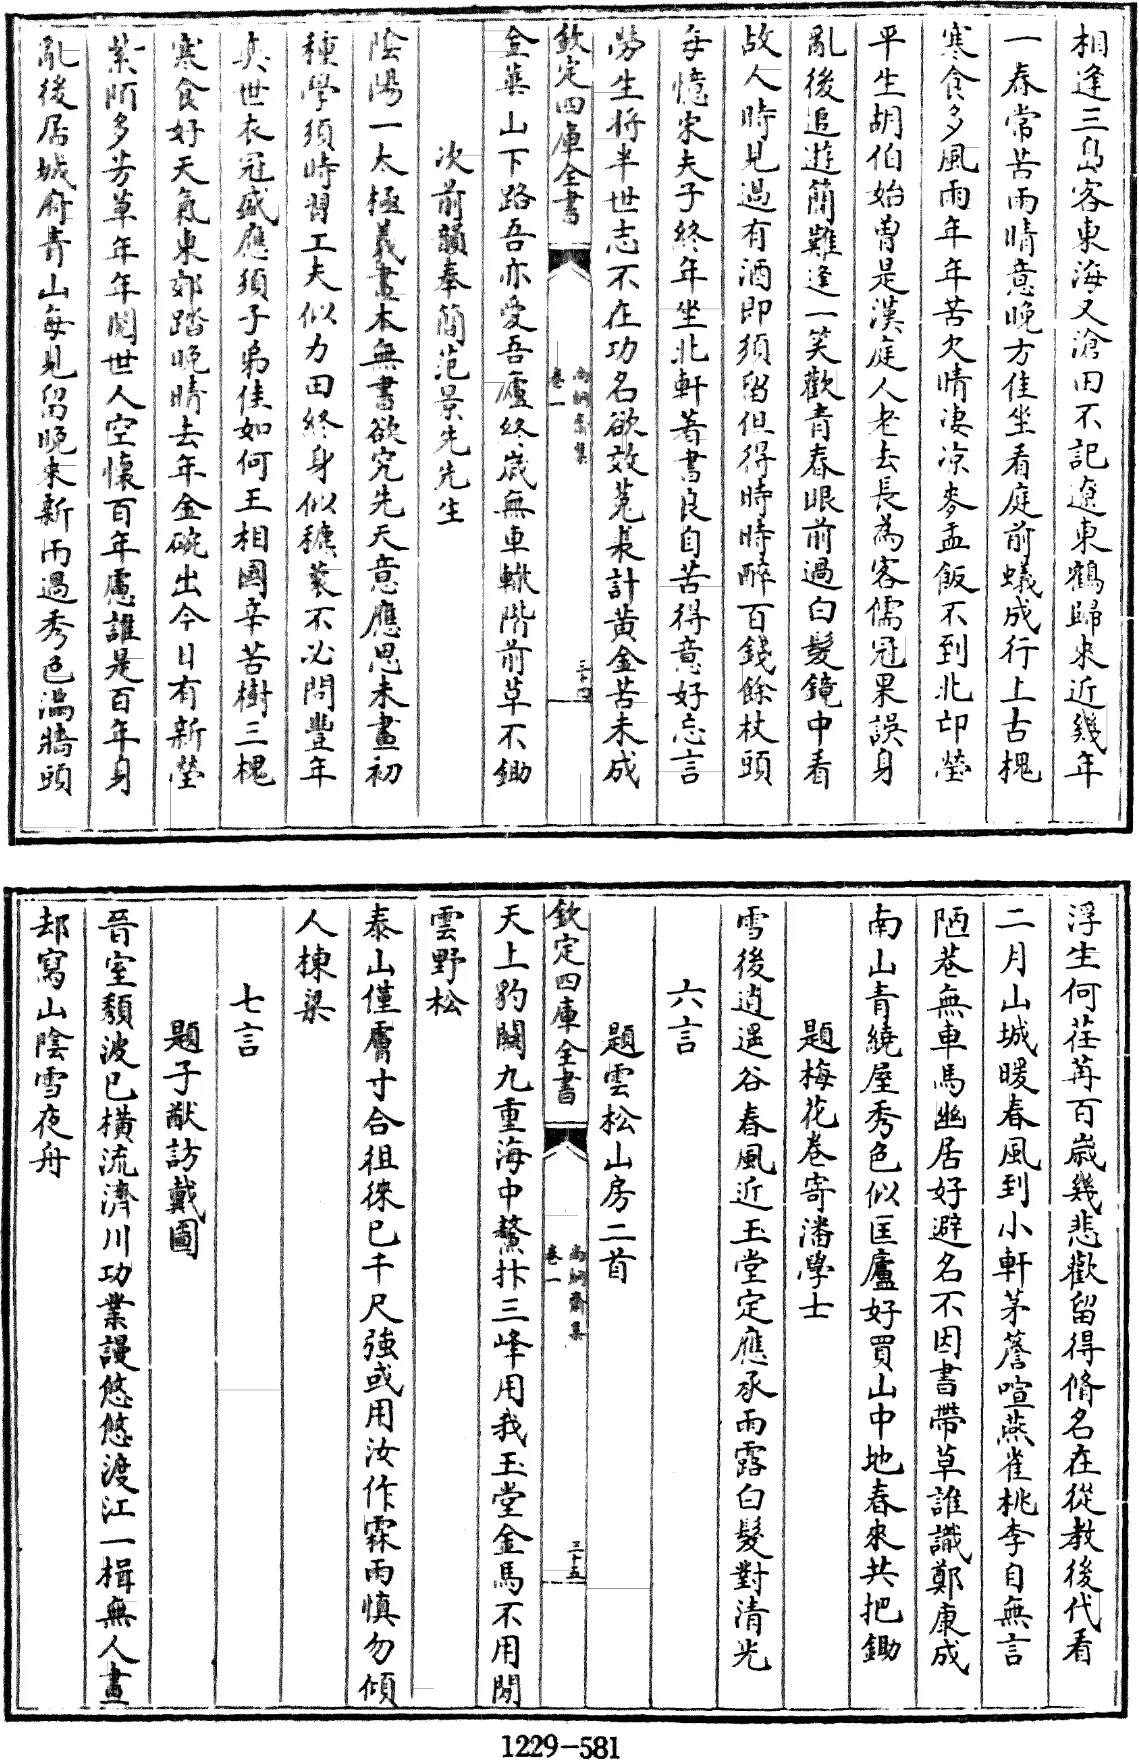 相逢三島客東海又滄田不記遼東鶴歸來近幾年
一春常苦雨晴意晚方佳坐看庭前蟻成行上古槐
寒食多風雨年年苦欠晴凄凉麥盂飯不到北邙瑩
平生胡伯始曽是漢庭人老去長為客儒冠果誤身
亂後追遊簡難逢一笑歡青春眼前過白髮鏡中看
故人時見過有酒即須留但得時時醉百錢餘杖頭
每憶宋夫子終年坐北軒著書良自苦得意好忘言
勞生将半世志不在功名欲效菟裘計黄金苦未成
欽定四庫全書
尚絅齋集
卷一
三十四
金華山下路吾亦愛吾廬終歳無車轍階前草不鋤
次前韻奉簡范景先先生
陰陽一太極義畫本無書欲究先天意應思未畫初
種學須時習工夫似力田終身似穮蓘不必問豐年
奕世衣冠盛應須子弟佳如何王相國辛苦樹三槐
寒食好天氣東郊踏晚晴去年金碗出今日有新瑩
紫陌多芳草年年閱世人空懐百年慮誰是百年身
亂後居城府青山每見留晚來新雨過秀色滿牆頭
浮生何荏苒百歳幾悲歡留得脩名在從教後代看
二月山城暖春風到小軒茅簷喧燕雀桃李自無言
陋巷無車馬幽居好避名不因書帶草誰識鄭康成
南山青繞屋秀色似匡廬好買山中地春來共把鋤
題梅花卷寄潘學士
雪後逍遥谷春風近玉堂定應承雨露白髮對清光
六言
題雲松山房二首
欽定四庫全書
尚絅齋集
卷一
三十五
天上豹關九重海中鰲抃三峰用我玉堂金馬不用閒
雲野松
泰山僅膚寸合徂徠已千尺強或用汝作霖雨慎勿傾
人棟梁
七言
題子猷訪戴圖
晉室頽波已横流濟川功業謾悠悠渡江一楫無人畫
却寫山陰雪夜舟
1229-581